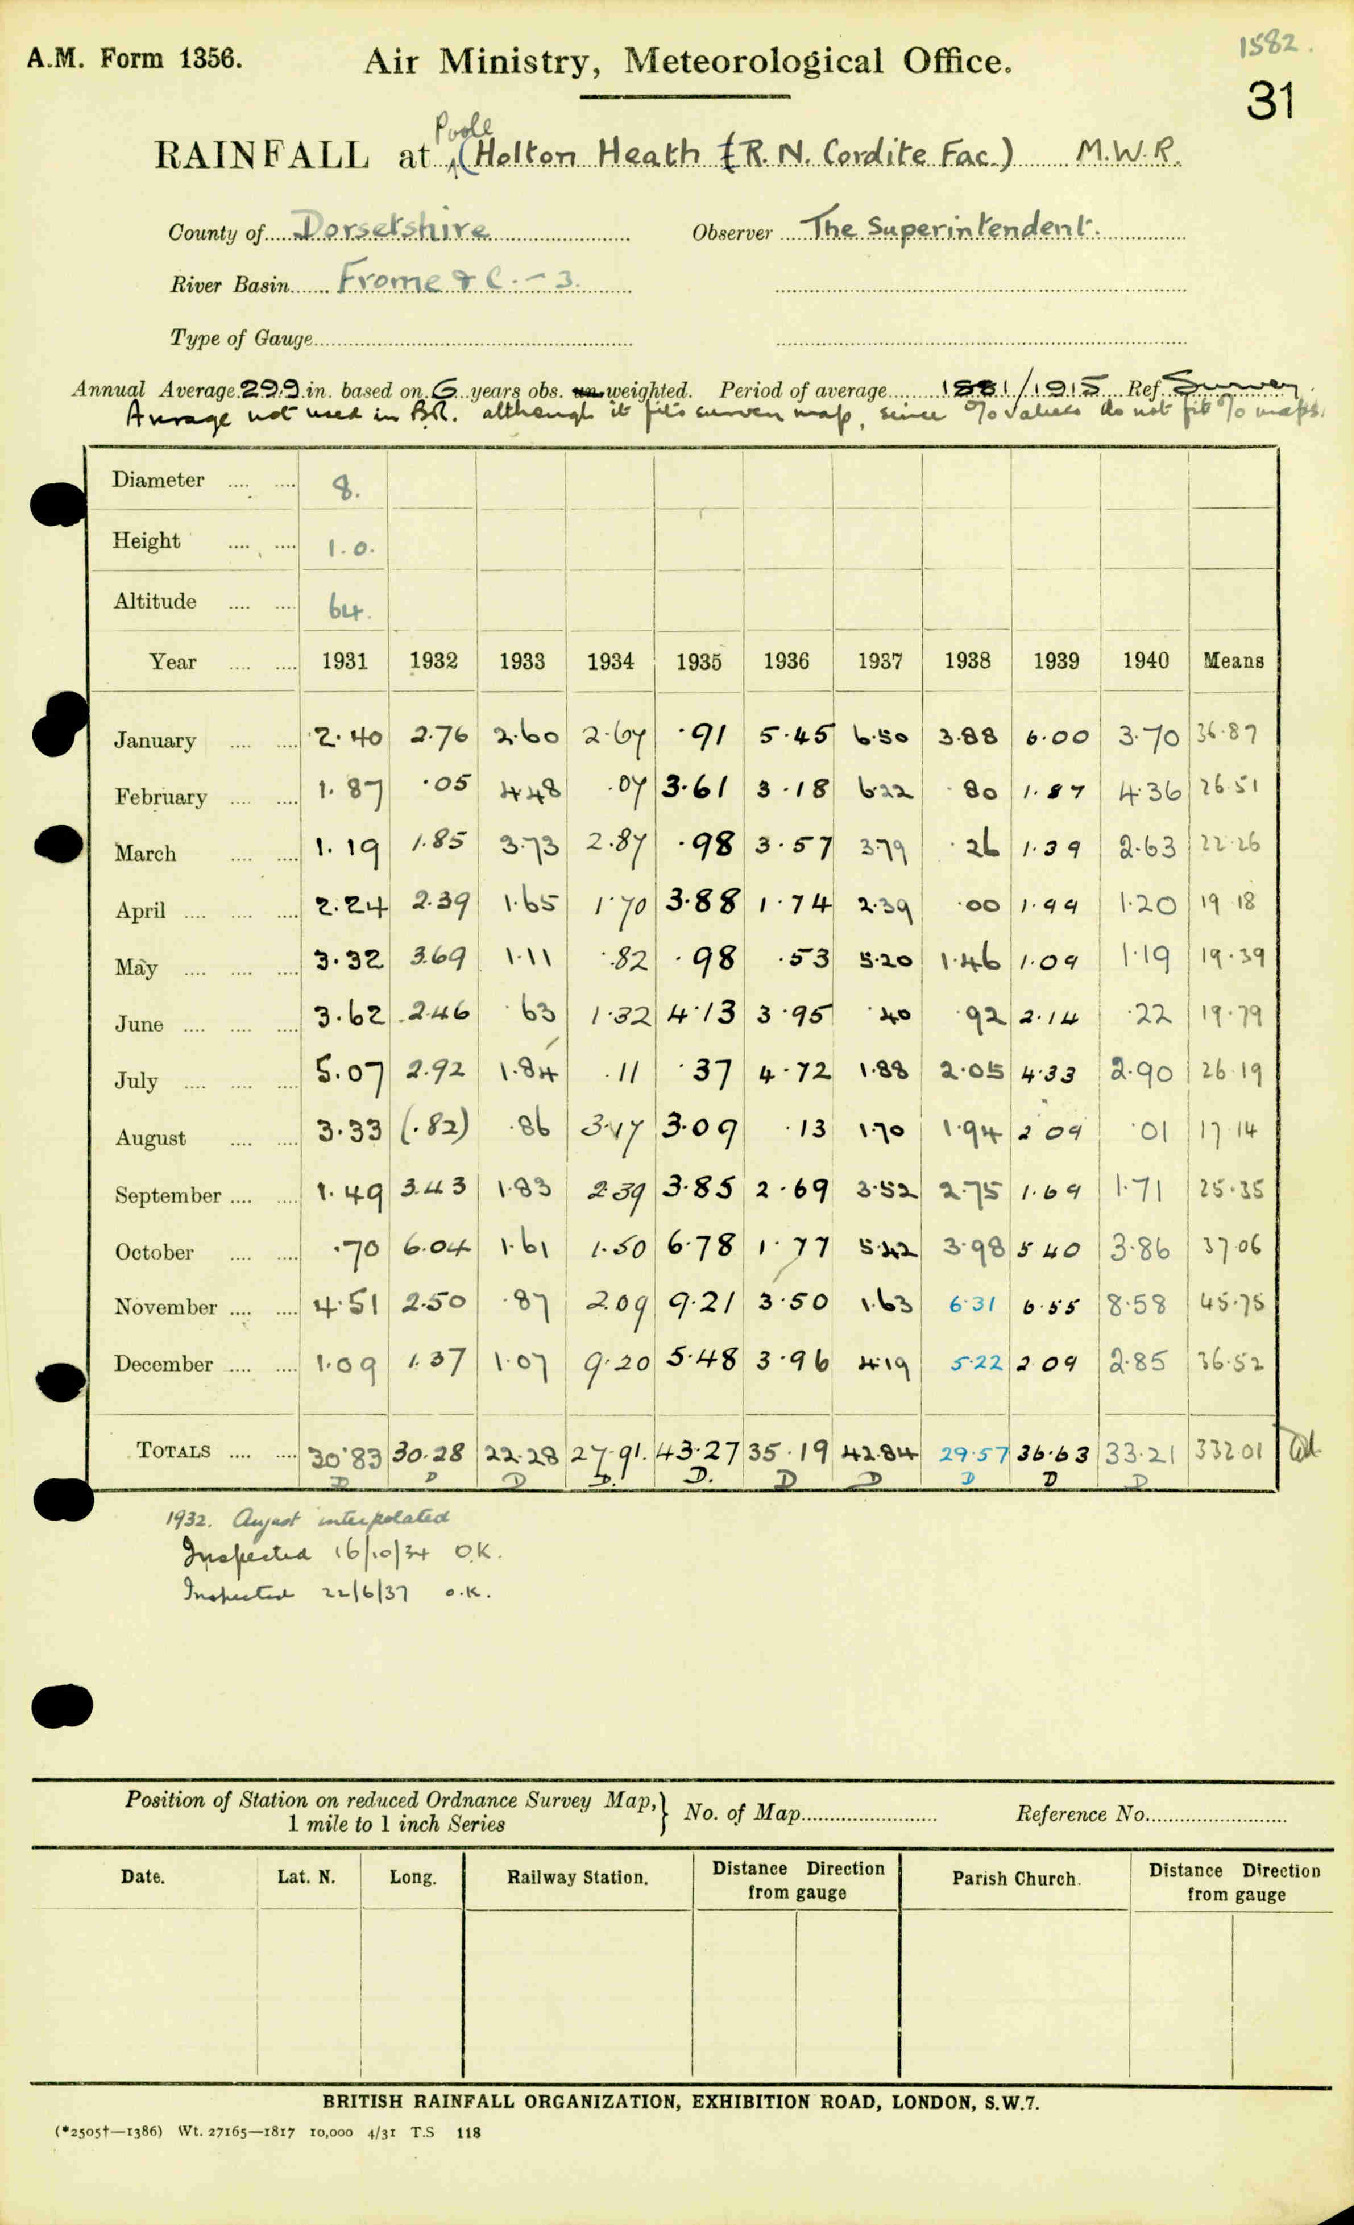 1582.
A.M. Form 1356. Air Ministry, Meteorological Office.
31
Poole
RAINFALL at (Holton Heath (R. N. Cordite Fac.) M.W.R.
County of Dorsetshire Observer The Superintendent.
River Basin Frome & C. - 3.
Type of Gauge
Annual Average 29.9 in. based on 6 years obs. un-weighted. Period of average 1881/1915 Ref. Survey.
Average not used in B.R. although it fits survey map, since % values do not fit % maps.
Diameter .... .... 8.
Height .... .... 1.0.
Altitude .... .... 64.
Year .... .... 1931 1932 1933 1934 1935 1936 1937 1938 1939 1940 Means
January .... .... 2.40 2.76 2.60 2.67 .91 5.45 6.50 3.88 6.00 3.70 36.87
February .... .... 1.87 .05 4.48 .07 3.61 3.18 6.22 .80 1.87 4.36 26.51
March .... .... 1.19 1.85 3.73 2.87 .98 3.57 3.79 .26 1.39 2.63 22.26
April .... .... .... 2.24 2.39 1.65 1.70 3.88 1.74 2.39 .00 1.99 1.20 19.18
May .... .... .... 3.32 3.69 1.11 .82 .98 .53 5.20 1.46 1.09 1.19 19.39
June .... .... .... 3.62 2.46 .63 1.32 4.13 3.95 .40 .92 2.14 .22 19.79
July .... .... .... 5.07 2.92 1.84 .11 .37 4.72 1.88 2.05 4.33 2.90 26.19
August .... .... 3.33 (.82) .86 3.17 3.09 .13 1.70 1.94 2.09 .01 17.14
September .... .... 1.49 3.43 1.83 2.39 3.85 2.69 3.52 2.75 1.69 1.71 25.35
October .... .... .70 6.04 1.61 1.50 6.78 1.77 5.42 3.98 5.40 3.86 37.06
November .... .... 4.51 2.50 .87 2.09 9.21 3.50 1.63 6.31 6.55 8.58 45.75
December .... .... 1.09 1.37 1.07 9.20 5.48 3.96 4.19 5.22 2.09 2.85 36.52
TOTALS .... .... 30.83 30.28 22.28 27.91. 43.27 35.19 42.84 29.57 36.63 33.21 332.01
D D D D. D. D D D D D
1932. August interpolated
Inspected 16/10/34 O.K.
Inspected 22/6/37 O.K.
Position of Station on reduced Ordnance Survey Map, 1 mile to 1 inch Series } No. of Map Reference No.
Date. Lat. N. Long. Railway Station. Distance Direction from gauge Parish Church. Distance Direction from gauge
BRITISH RAINFALL ORGANIZATION, EXHIBITION ROAD, LONDON, S.W.7.
(*2505†—1386) Wt. 27165—1817 10,000 4/31 T.S 118